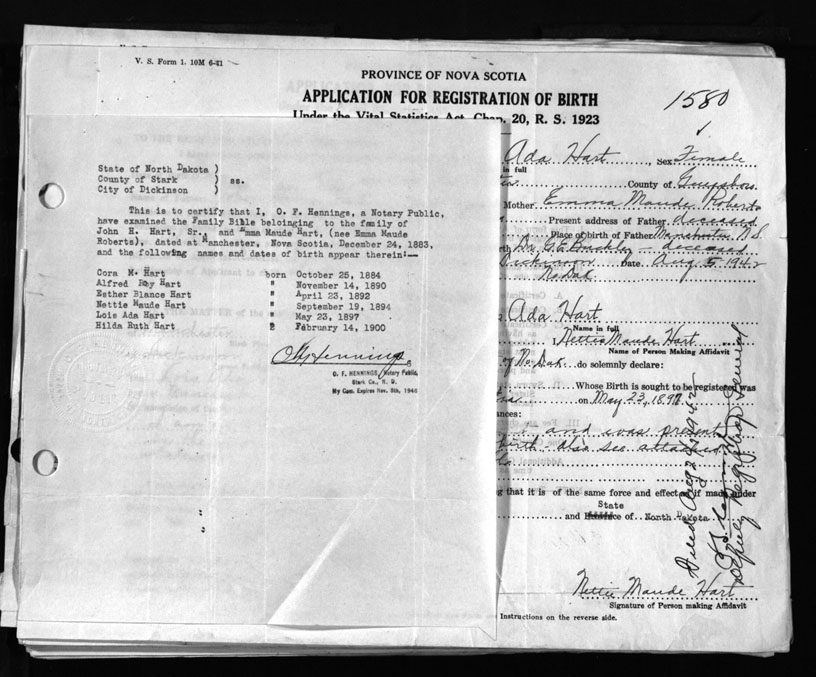 V. S. Form 1. 10M 6-31
PROVINCE OF NOVA SCOTIA
APPLICATION FOR REGISTRATION OF BIRTH
Under the Vital Statistics Act, Chap. 20, R. S. 1923
1580
State of North Dakota )
County of Stark ) ss.
City of Dickinson )
This is to certify that I, O. F. Hennings, a Notary Public,
have examined the Family Bible beloinging to the family of
John H. Hart, Sr., and Emma Maude Hart, (nee Emma Maude
Roberts), dated at Manchester, Nova Scotia, December 24, 1883,
and the following names and dates of birth appear therein:—
Cora M. Hart born October 25, 1884
Alfred Roy Hart " November 14, 1890
Esther Blance Hart " April 23, 1892
Nettie Maude Hart " September 19, 1894
Lois Ada Hart " May 23, 1897
Hilda Ruth Hart " February 14, 1900
O F Hennings
O. F. HENNINGS, Notary Public,
Stark Co., N. D.
My Com. Expires Nov. 5th, 1946
Ada Hart, Sex Female
in full
County of Guysboro
Mother Emma Maude Roberts
Present address of Father deceased
Place of birth of Father Manchester N.S.
Dr. G.E. Buckley - deceased
Dickinson Date Aug 5 1942
No Dak
Ada Hart
Name in full
Nettie Maude Hart
Name of Person Making Affidavit
No Dak. do solemnly declare:
Whose Birth is sought to be registered was
on May 23, 1897
and was present
birth. Also see attached
ng that it is of the same force and effect as if made under
State
and Province of North Dakota
Nettie Maude Hart
Signature of Person making Affidavit
Instructions on the reverse side.
Filed Aug 24 1942
Deputy Registrar General